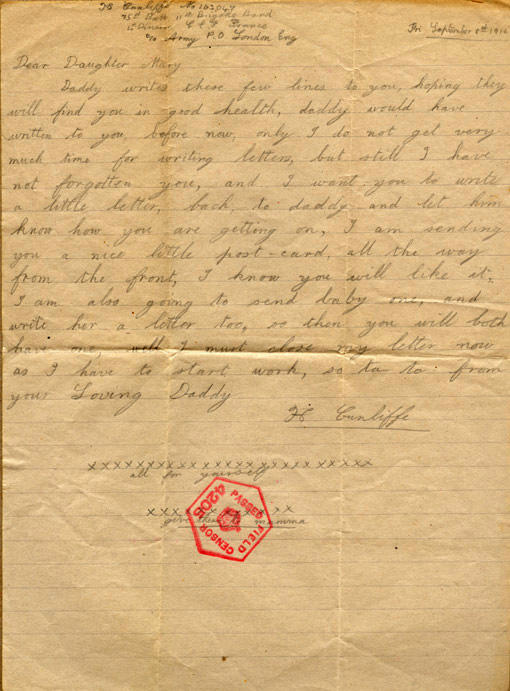 H Cunliffe No 163047
75th Batt 11th Brigade Band
4th Division C.E.F. France
c/o Army P.O London Eng
Fri September 8th 1916
Dear Daughter Mary
Daddy writes these few lines to you, hoping they
will find you in good health, daddy would have
written to you, before now, only I do not get very
much time for writing letters, but still I have
not forgotten you, and I want you to write
a little letter, back, to daddy and let him
know how you are getting on, I am sending
you a nice little post-card, all the way
from the front, I know you will like it.
I am also going to send baby one, and
write her a letter too, so then you will both
have one, well I must close my letter now
as I have to start work, so ta ta from
your Loving Daddy
H Cunliffe
xxxxxxxxxxxxxxxxxxxxxxxxx
all for yourself
xxxxxxxxxxxxx
give these to mamma
PASSED FIELD CENSOR
4205